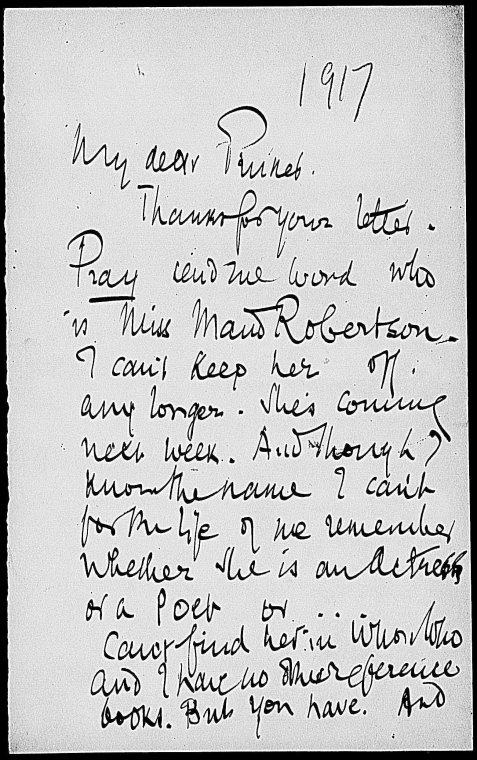 1917
My dear Prince.
Thanks for your letter.
Pray send me word who
is Miss Maud Robertson.
I can't keep her off
any longer. She's coming
next week. And though I
know the name I can't
for the life of me remember
whether she is an Actress
or a Poet or ...
Can't find her in Who's Who
and I have no other reference
books. But you have. And